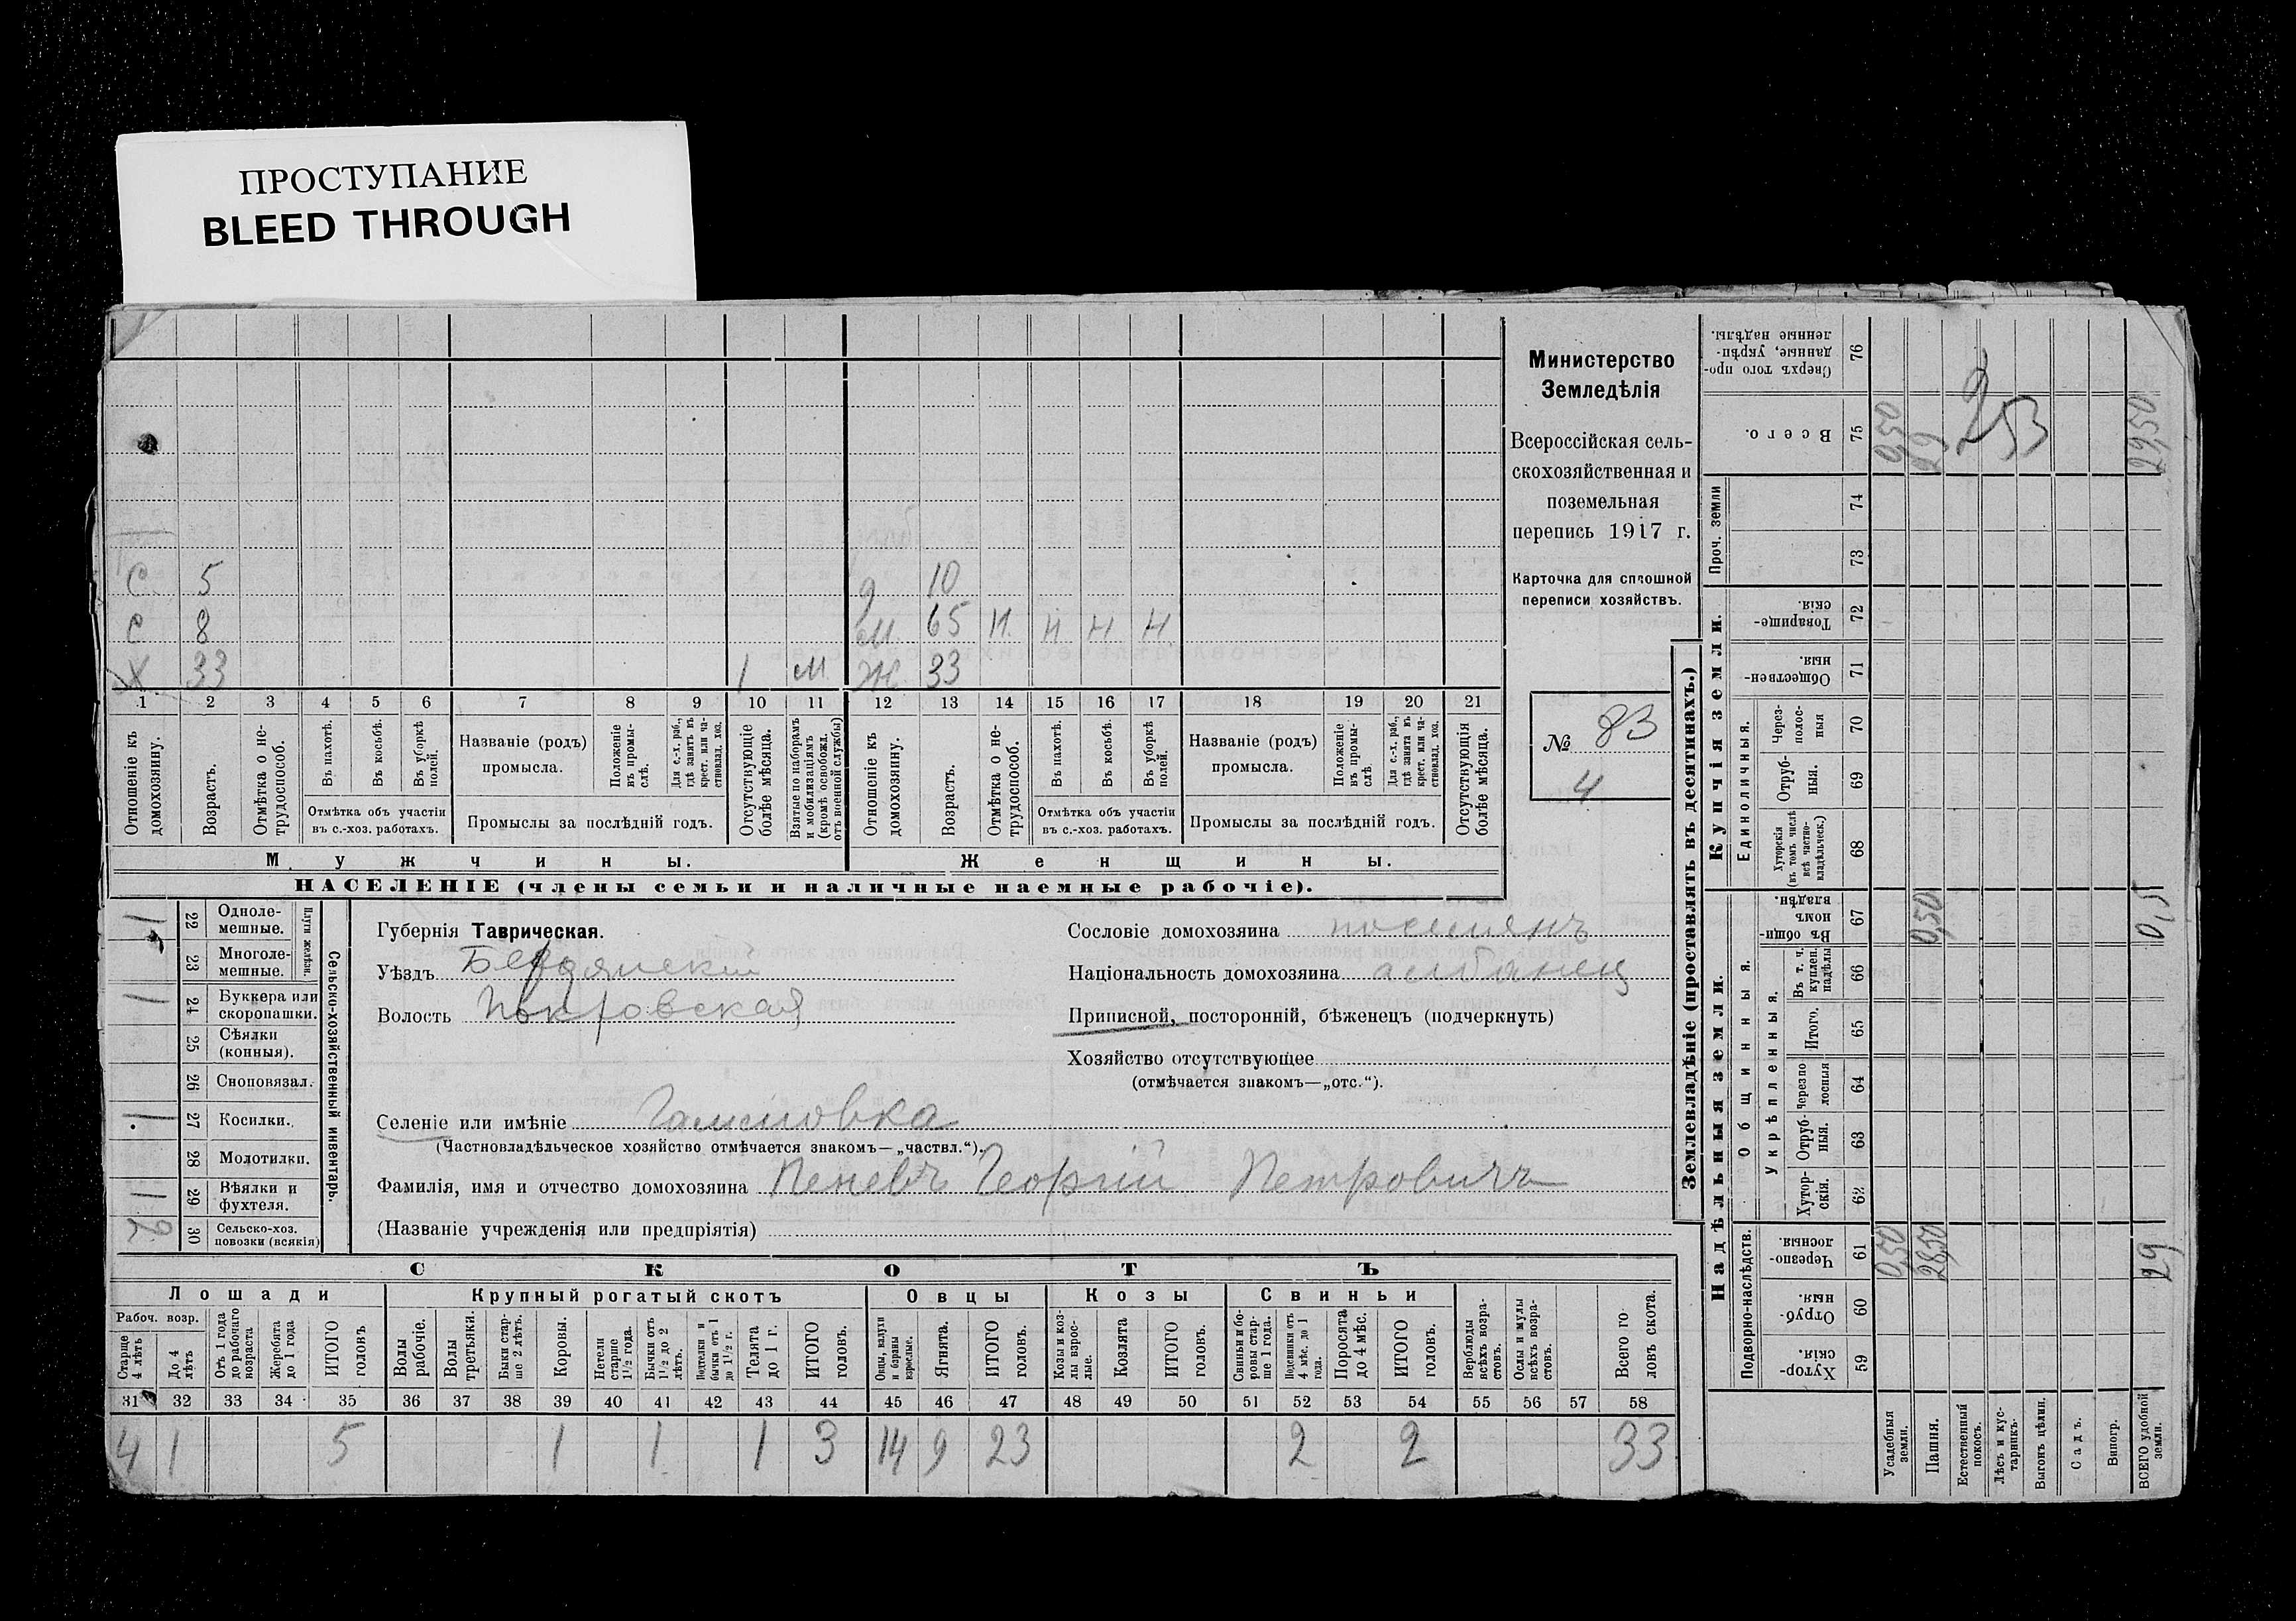 ПРОСТУПАНИЕ
BLEED THROUGH
С 5 д 10
С 8 М 65 Н Н Н Н
Х 33 1 М Ж 33
1 2 3 4 5 6 7 8 9 10 11 12 13 14 15 16 17 18 19 20 21
Отношеніе къ домохозяину.
Возрастъ.
Отмѣтка о нетрудоспособ.
Въ пахотѣ.
Въ косьбѣ.
Въ уборкѣ полей.
Отмѣтка объ участіи
въ с.-хоз. работахъ.
Названіе (родъ)
промысла.
Положеніе въ промыслѣ.
Для с.-х. раб., гдѣ занятъ въ крест. или частновлад. хоз.
Промыслы за послѣдній годъ.
Отсутствующіе болѣе мѣсяца.
Взятые по наборамъ и мобилизаціямъ (кромѣ освобожд. отъ военной службы)
Отношеніе къ домохозяину.
Возрастъ.
Отмѣтка о нетрудоспособ.
Въ пахотѣ.
Въ косьбѣ.
Въ уборкѣ полей.
Отмѣтка объ участіи
въ с.-хоз. работахъ.
Названіе (родъ)
промысла.
Положеніе въ промыслѣ.
Для с.-х. раб., гдѣ занята въ крест. или частновлад. хоз.
Промыслы за послѣдній годъ.
Отсутствующія болѣе мѣсяца.
Мужчины.
Женщины.
НАСЕЛЕНІЕ (члены семьи и наличные наемные рабочіе).
Министерство
Земледѣлія
Всероссійская сель-
скохозяйственная и
поземельная
перепись 1917 г.
Карточка для сплошной
переписи хозяйствъ.
№ 83
4
Сельско-хозяйственный инвентарь.
Плуги желѣзн.
1 22 Одноле-
мешные.
23 Многоле-
мешные.
1 24 Буккера или
скоропашки.
25 Сѣялки
(конныя).
26 Сноповязал.
1 27 Косилки.
28 Молотилки.
1 29 Вѣялки и
фухтеля.
2 30 Сельско-хоз.
повозки (всякія)
Губернія Таврическая.
Уѣздъ Бердянскій
Волость Покровская
Селеніе или имѣніе Гамовка
(Частновладѣльческое хозяйство отмѣчается знакомъ—„частвл.“).
Фамилія, имя и отчество домохозяина Пеневъ Георгій Петровичъ
(Названіе учрежденія или предпріятія)
Сословіе домохозяина поселянъ
Національность домохозяина албанец
Приписной, посторонній, бѣженецъ (подчеркнуть)
Хозяйство отсутствующее
(отмѣчается знакомъ—„отс.“).
СКОТЪ
Лошади
Крупный рогатый скотъ
Овцы
Козы
Свиньи
Рабоч. возр.
Старше 4 лѣтъ
До 4 лѣтъ
Отъ 1 года до рабочаго возраста
Жеребята до 1 года
ИТОГО головъ
Волы рабочіе.
Волы третьяки.
Быки старше 2 лѣтъ.
Коровы.
Нетели старше 1½ года.
Бычки отъ 1½ до 2 лѣтъ.
Подтелки и бычки отъ 1 до 1½ г.
Телята до 1 г.
ИТОГО головъ.
Овцы, валухи и бараны взрослые.
Ягнята.
ИТОГО головъ.
Козы и козлы взрослые.
Козлята
ИТОГО головъ.
Свиньи и боровы старше 1 года.
Подсвинки отъ 4 мѣс. до 1 года.
Поросята до 4 мѣс.
ИТОГО головъ.
Верблюды всѣхъ возрастовъ.
Ослы и мулы всѣхъ возрастовъ.
Всего головъ скота.
31 32 33 34 35 36 37 38 39 40 41 42 43 44 45 46 47 48 49 50 51 52 53 54 55 56 57 58
4 1 5 1 1 1 3 14 9 23 2 2 33
Землевладѣніе (проставлять въ десятинахъ.)
Надѣльныя земли.
Купчія земли.
Проч. земли
Подворно-наслѣдств.
Общинныя.
Укрѣпленныя.
Единоличныя.
Сверхъ того проданные, укрѣпленные надѣлы. 76
Всего. 75 0,50 29 29,50
253
74
73
Товарищескія. 72
Общественныя. 71
Черезполосныя 70
Отрубныя. 69
Хуторскія (въ томъ числѣ всѣ частновладѣльческ.) 68
Въ общинномъ владѣн. 67 0,50 0,5
Въ т. ч. куплен. надѣлы 66
Итого. 65
Черезполосныя 64
Отрубныя. 63
Хуторскія. 62
Черезполосныя. 61 0,50 28,50 29
Отрубныя. 60
Хуторскія. 59
Усадебныя земли.
Пашня.
Естественный покосъ.
Лѣсъ и кустарникъ.
Выгонъ цѣлин.
Садъ.
Виногр.
ВСЕГО удобной земли.